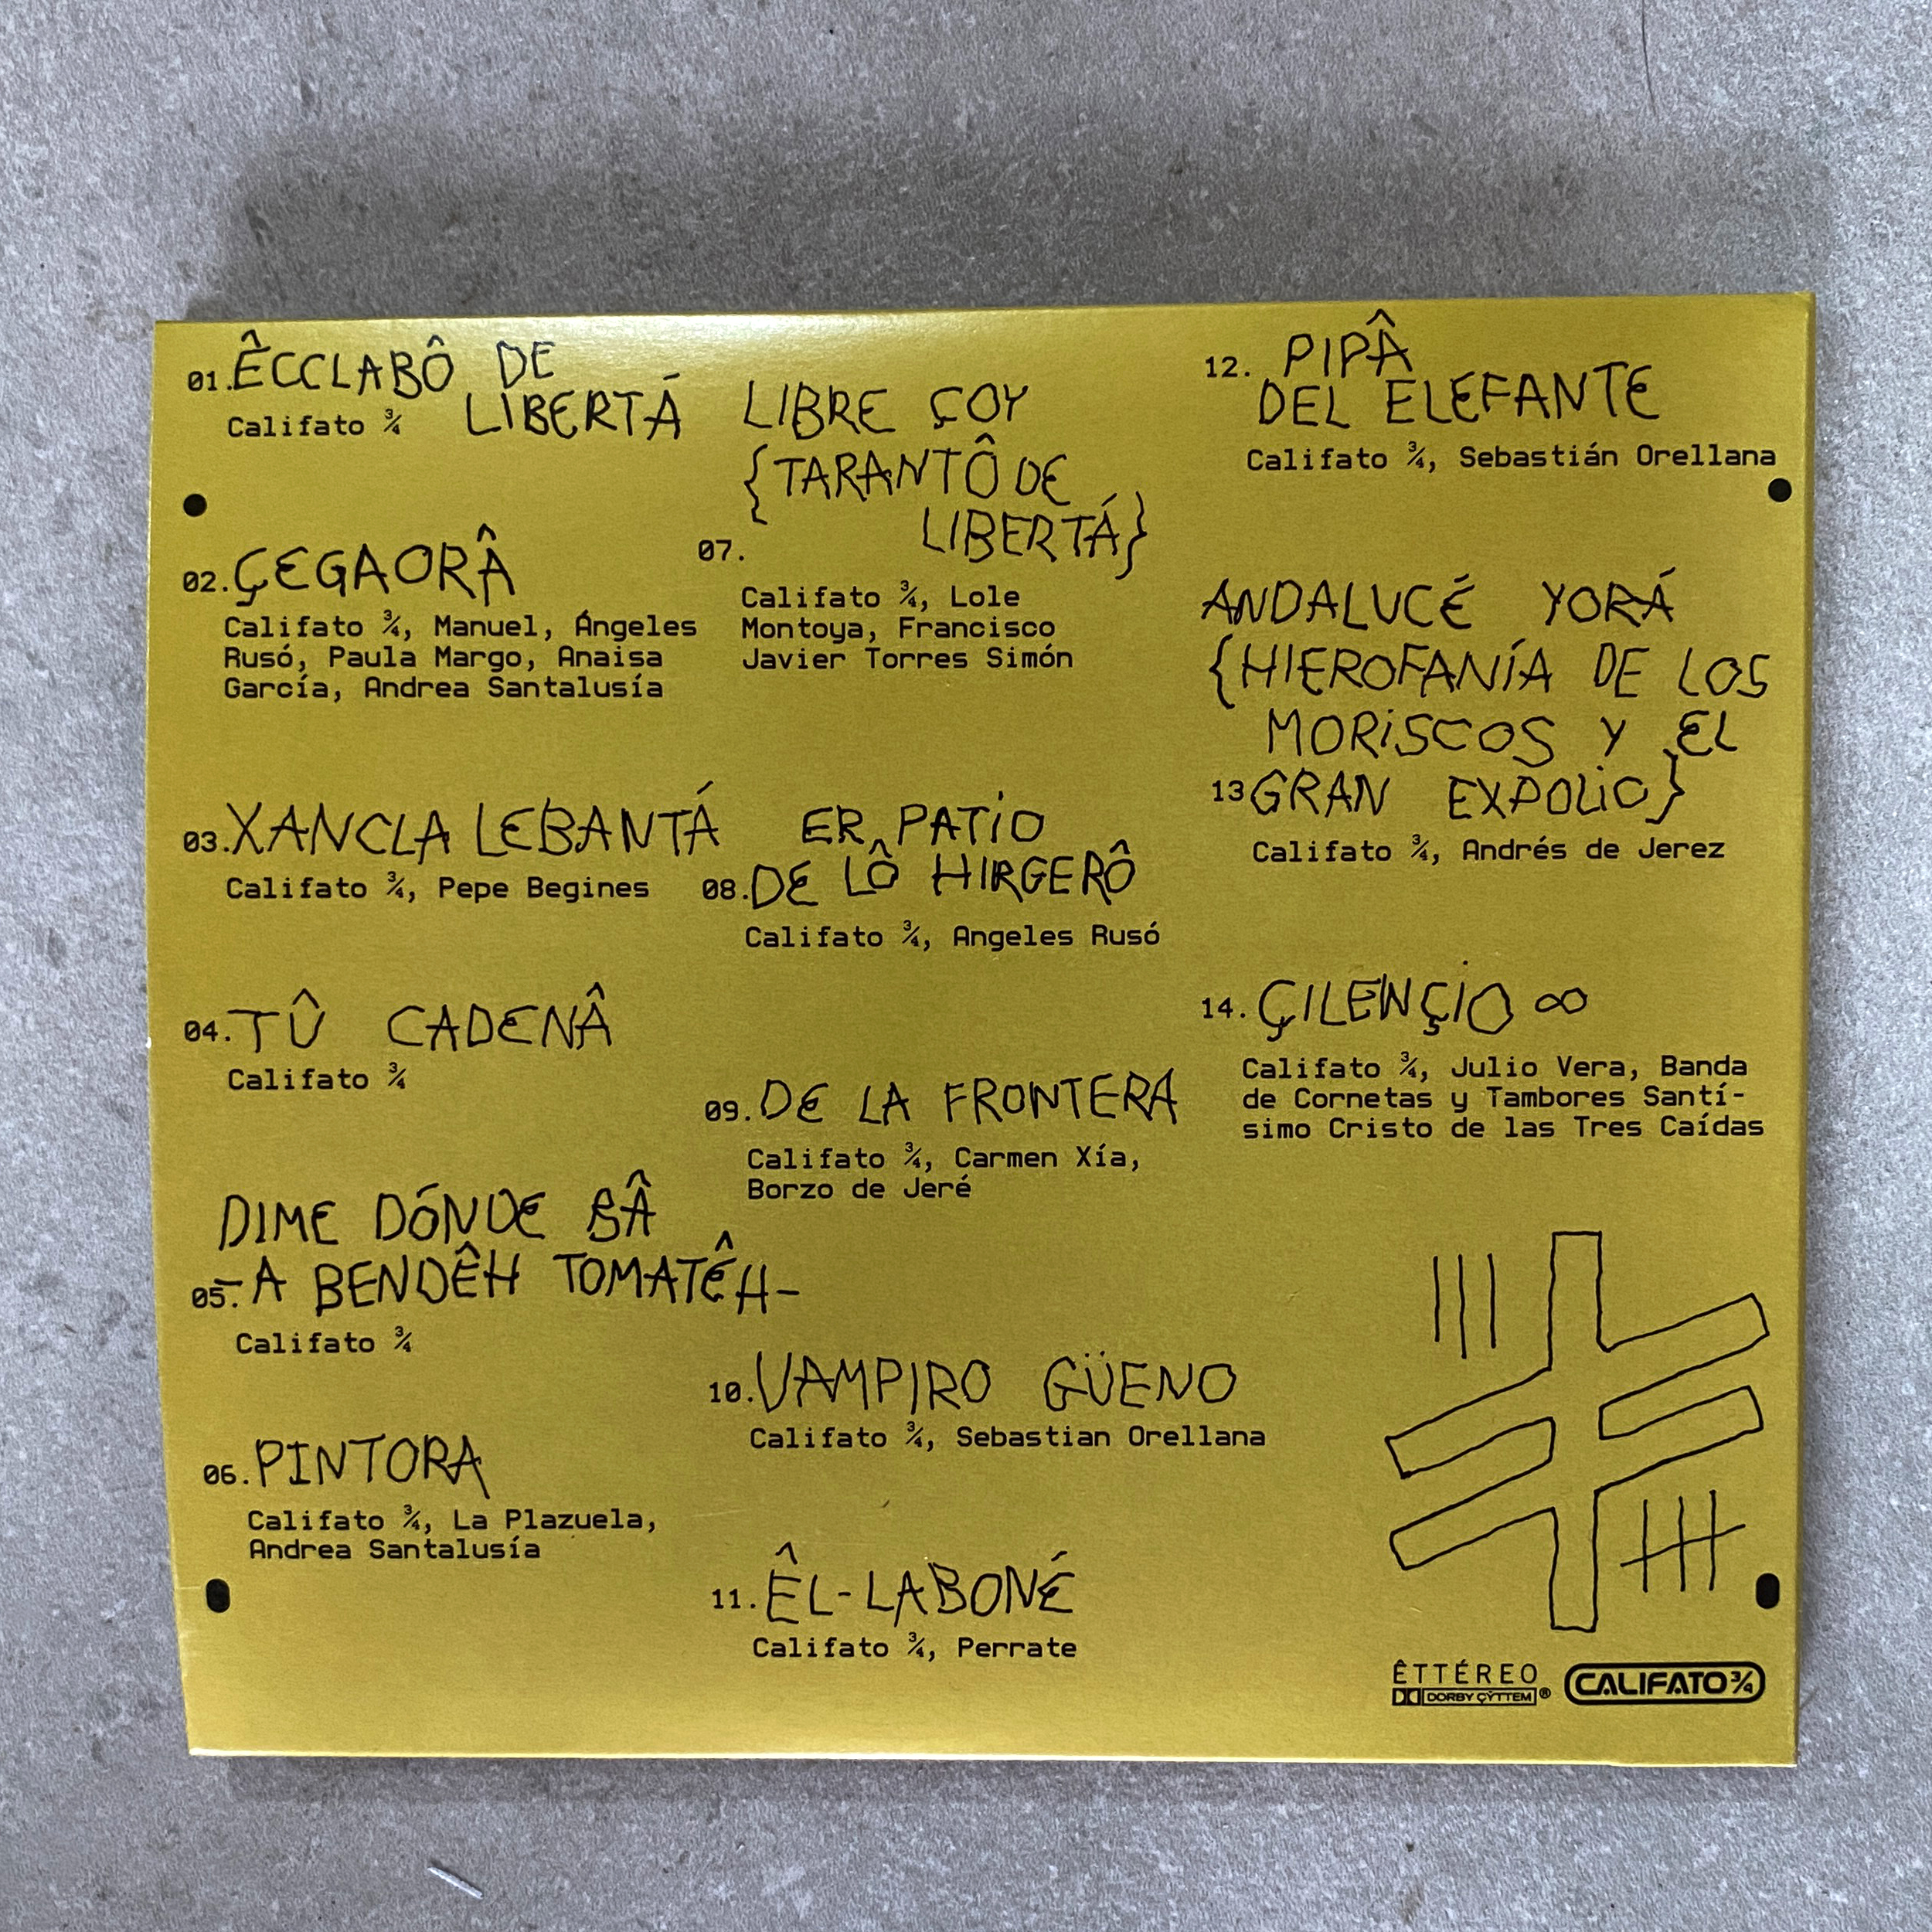 01. ÊCCLABÔ DE
LIBERTÁ
Califato ¾
02. ÇEGAORÂ
Califato ¾, Manuel, Ángeles
Rusó, Paula Margo, Anaisa
García, Andrea Santalusía
03. XANCLA LEBANTÁ
Califato ¾, Pepe Begines
04. TÛ CADENÂ
Califato ¾
DIME DÓNDE BÂ
05. -A BENDÊH TOMATÊH-
Califato ¾
06. PINTORA
Califato ¾, La Plazuela,
Andrea Santalusía
LIBRE ÇOY
{TARANTÔ DE
07. LIBERTÁ}
Califato ¾, Lole
Montoya, Francisco
Javier Torres Simón
ER PATIO
08. DE LÔ HIRGERÔ
Califato ¾, Angeles Rusó
09. DE LA FRONTERA
Califato ¾, Carmen Xía,
Borzo de Jeré
10. VAMPIRO GÜENO
Califato ¾, Sebastian Orellana
11. ÊL-LABONÉ
Califato ¾, Perrate
12. PIPÂ
DEL ELEFANTE
Califato ¾, Sebastián Orellana
ANDALUCÉ YORÁ
{HIEROFANÍA DE LOS
MORiSCOS Y EL
13 GRAN EXPOLiO}
Califato ¾, Andrés de Jerez
14. ÇILENÇiO ∞
Califato ¾, Julio Vera, Banda
de Cornetas y Tambores Santí-
simo Cristo de las Tres Caídas
ÊTTÉREO
DORBY ÇŸTTEM®
CALIFATO ¾